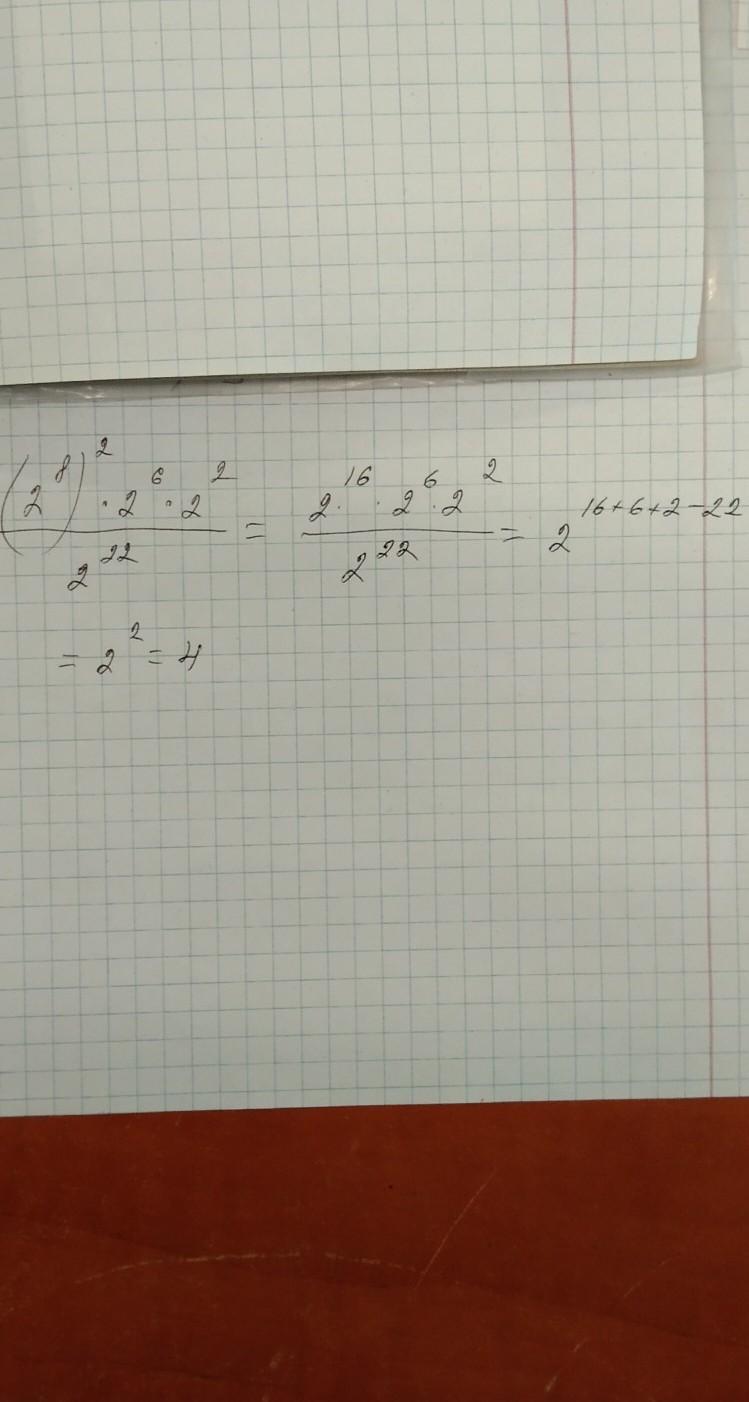 (2^8)^2 · 2^6 · 2^2 / 2^22 = 2^16 · 2^6 · 2^2 / 2^22 = 2^16+6+2-22
= 2^2 = 4